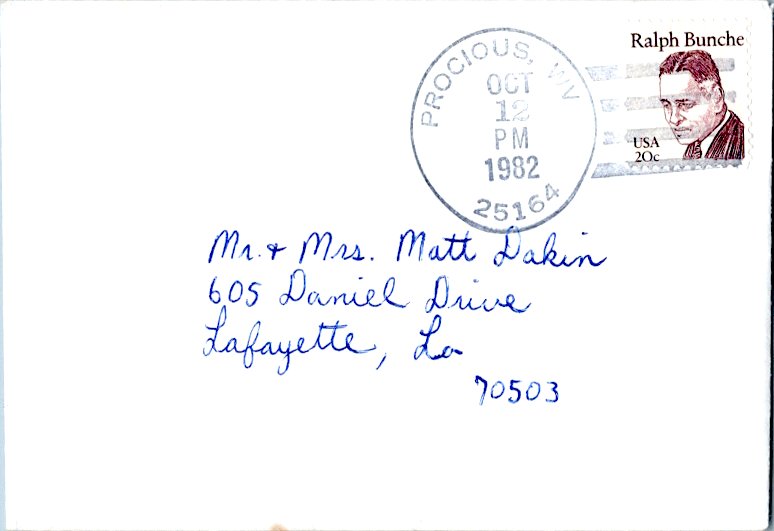 Ralph Bunche
USA
20c
PROCIOUS, WV
OCT
12
PM
1982
25164
Mr. & Mrs. Matt Dakin
605 Daniel Drive
Lafayette, La
70503